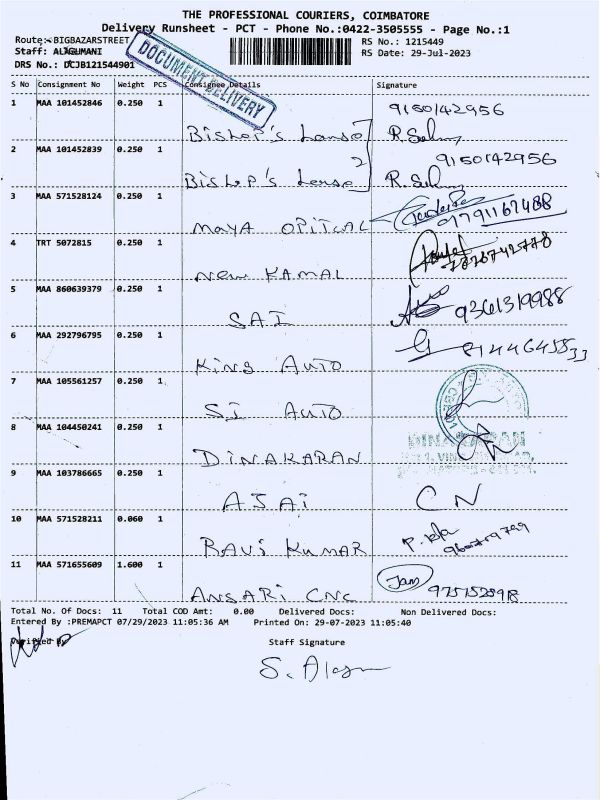 THE PROFESSIONAL COURIERS, COIMBATORE
Delivery Runsheet - PCT - Phone No.:0422-3505555 - Page No.:1
Route:-BIGBAZARSTREET RS No.: 1215449
Staff: ALAGUMANI RS Date: 29-Jul-2023
DRS No.: DCJB121544901
DOCUMENT DELIVERY
S No Consignment No Weight PCS Consignee Details Signature
1 MAA 101452846 0.250 1 Bishop's house 9150142956
2 MAA 101452839 0.250 1 Bishop's house 9150142956
2
3 MAA 571528124 0.250 1 MAYA OPITCAL
4 TRT 5072815 0.250 1 New KAMAL
5 MAA 860639379 0.250 1 SAI 9361319988
6 MAA 292796795 0.250 1 KING AUTO
7 MAA 105561257 0.250 1 SI AUTO
8 MAA 104450241 0.250 1 DINAKARAN
DINAKARAN
9 MAA 103786665 0.250 1 AJAI CN
10 MAA 571528211 0.060 1 RAVI KUMAR
11 MAA 571655609 1.600 1 ANSARI CNC Jam
Total No. Of Docs: 11 Total COD Amt: 0.00 Delivered Docs: Non Delivered Docs:
Entered By :PREMAPCT 07/29/2023 11:05:36 AM Printed On: 29-07-2023 11:05:40
Verified By Staff Signature